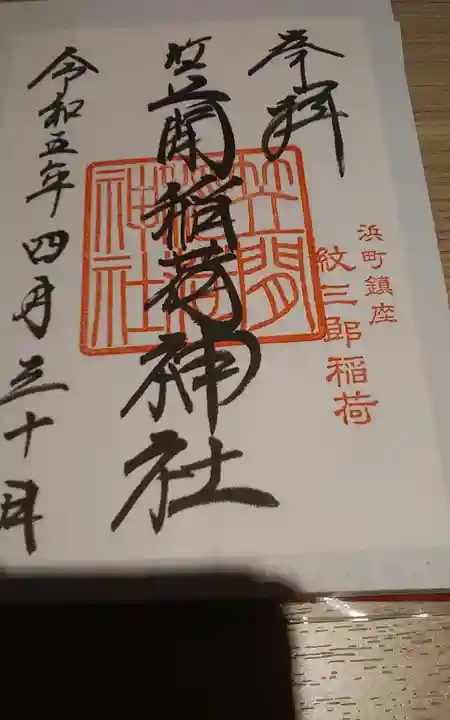 奉拝
浜町鎮座
紋三郎稲荷
笠間稲荷神社
笠間稲荷神社
令和五年四月三十日